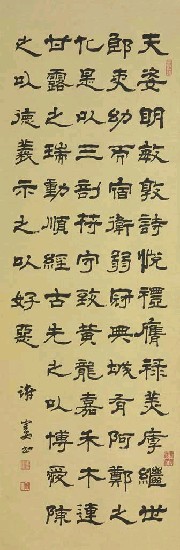 天姿明敏敦詩悅禮膺祿美厚繼世
郎吏幼而宿衛弱冠典城有阿鄭之
化是以三剖符守致黃龍嘉禾木連
甘露之瑞動順經古先之以博愛陳
之以德義示之以好惡